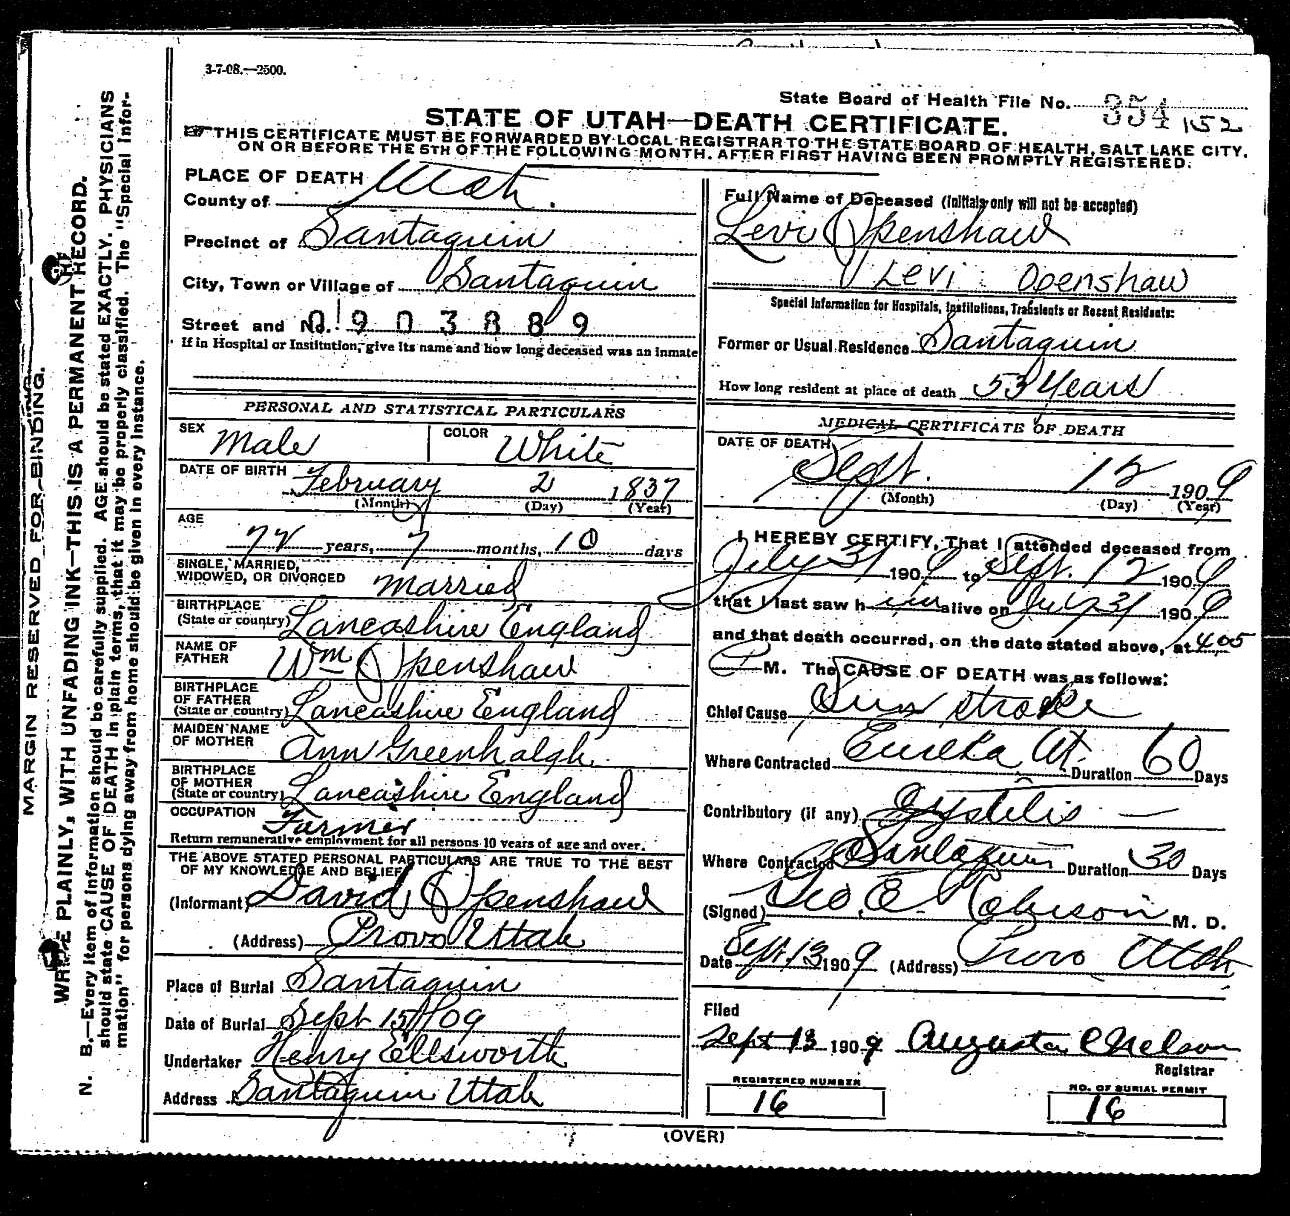 3-7-08.—2500.
State Board of Health File No. 354 152
STATE OF UTAH—DEATH CERTIFICATE.
THIS CERTIFICATE MUST BE FORWARDED BY LOCAL REGISTRAR TO THE STATE BOARD OF HEALTH, SALT LAKE CITY,
ON OR BEFORE THE 5TH OF THE FOLLOWING MONTH, AFTER FIRST HAVING BEEN PROMPTLY REGISTERED.
MARGIN RESERVED FOR BINDING.
WRITE PLAINLY, WITH UNFADING INK—THIS IS A PERMANENT RECORD.
N. B.—Every item of information should be carefully supplied. AGE should be stated EXACTLY. PHYSICIANS
should state CAUSE OF DEATH in plain terms, that it may be properly classified. The "Special Infor-
mation" for persons dying away from home should be given in every instance.
PLACE OF DEATH
County of Utah.
Precinct of Santaquin
City, Town or Village of Santaquin
Street and No. 0903889
If in Hospital or Institution, give its name and how long deceased was an inmate
PERSONAL AND STATISTICAL PARTICULARS
SEX Male COLOR White
DATE OF BIRTH February 2 1837
(Month) (Day) (Year)
AGE
72 years, 7 months, 10 days
SINGLE, MARRIED,
WIDOWED, OR DIVORCED Married
BIRTHPLACE
(State or country) Lancashire England
NAME OF
FATHER Wm Openshaw
BIRTHPLACE
OF FATHER
(State or country) Lancashire England
MAIDEN NAME
OF MOTHER Ann Greenhalgh
BIRTHPLACE
OF MOTHER
(State or country) Lancashire England
OCCUPATION
Farmer
Return remunerative employment for all persons 10 years of age and over.
THE ABOVE STATED PERSONAL PARTICULARS ARE TRUE TO THE BEST
OF MY KNOWLEDGE AND BELIEF
(Informant) David Openshaw
(Address) Provo Utah
Place of Burial Santaquin
Date of Burial Sept 15/09
Undertaker Henry Ellsworth
Address Santaquin Utah
Full Name of Deceased (Initials only will not be accepted)
Levi Openshaw
Levi Openshaw
Special Information for Hospitals, Institutions, Transients or Recent Residents:
Former or Usual Residence Santaquin
How long resident at place of death 53 Years
MEDICAL CERTIFICATE OF DEATH
DATE OF DEATH
Sept. 12 1909
(Month) (Day) (Year)
I HEREBY CERTIFY, That I attended deceased from
July 31 1909 to Sept. 12 1909
that I last saw him alive on July 31 1909
and that death occurred, on the date stated above, at 1405
P M. The CAUSE OF DEATH was as follows:
Chief Cause Sun stroke
Where Contracted Eureka Ut. Duration 60 Days
Contributory (if any) —
Where Contracted Santaquin Duration 30 Days
(Signed) Geo. E. Robison M. D.
Date Sept. 13 1909 (Address) Provo Utah
Filed
Sept 13 1909 Augusta C Nelson
Registrar
REGISTERED NUMBER
16
NO. OF BURIAL PERMIT
16
(OVER)